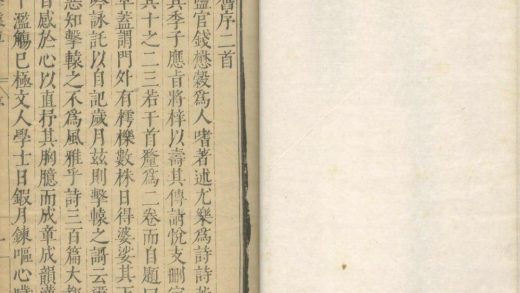 序二首
鹽官錢懋穀爲人嗜著述尤樂爲詩詩
其季子應旹將梓以壽其傳請悅支刪定
其十之二三若干首釐爲二卷而自題曰
草蓋謂門外有樗櫟數株日得婆娑其下
詠託以自記歲月茲則擊轅之謂云
惡知擊轅之不爲風雅乎詩三百篇大
感於心以直抒其胸臆而成章成韻
濫觴已極文人學士日鍜月鍊嘔心